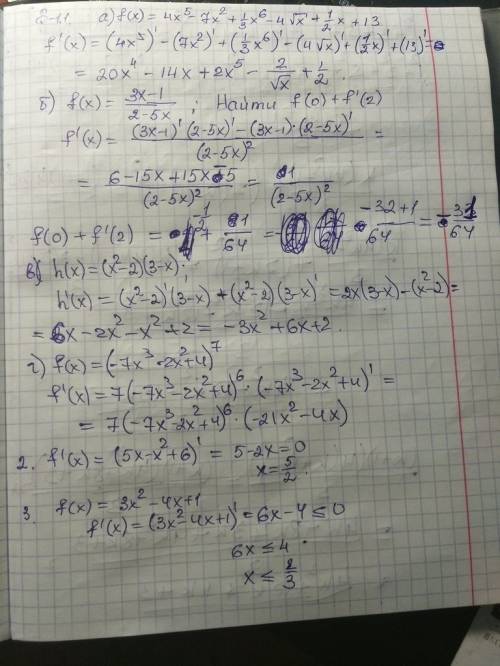 С-11. а) f(x) = 4x⁵ - 7x² + 1/3 x⁶ - 4√x + 1/2 x + 13
f'(x) = (4x⁵)' - (7x²)' + (1/3 x⁶)' - (4√x)' + (1/2 x)' + (13)' =
= 20x⁴ - 14x + 2x⁵ - 2/√x + 1/2.
б) f(x) = (3x-1)/(2-5x) ; Найти f(0) + f'(2)
f'(x) = ((3x-1)'(2-5x)' - (3x-1)·(2-5x)')/(2-5x)² =
= (6-15x+15x-5)/(2-5x)² = 1/(2-5x)²
f(0) + f'(2) = -1/2 + 1/64 = (-32+1)/64 = -31/64
в) h(x) = (x²-2)(3-x).
h'(x) = (x²-2)'(3-x) + (x²-2)(3-x)' = 2x(3-x) - (x²-2) =
= 6x - 2x² - x² + 2 = -3x² + 6x + 2.
г) f(x) = (-7x³ - 2x² + 4)⁷
f'(x) = 7(-7x³ - 2x² + 4)⁶ · (-7x³ - 2x² + 4)' =
= 7(-7x³ - 2x² + 4)⁶ · (-21x² - 4x)
2. f'(x) = (5x - x² + 6)' = 5 - 2x = 0
x = 5/2.
3. f(x) = 3x² - 4x + 1
f'(x) = (3x² - 4x + 1)' = 6x - 4 ≤ 0
6x ≤ 4
x ≤ 2/3